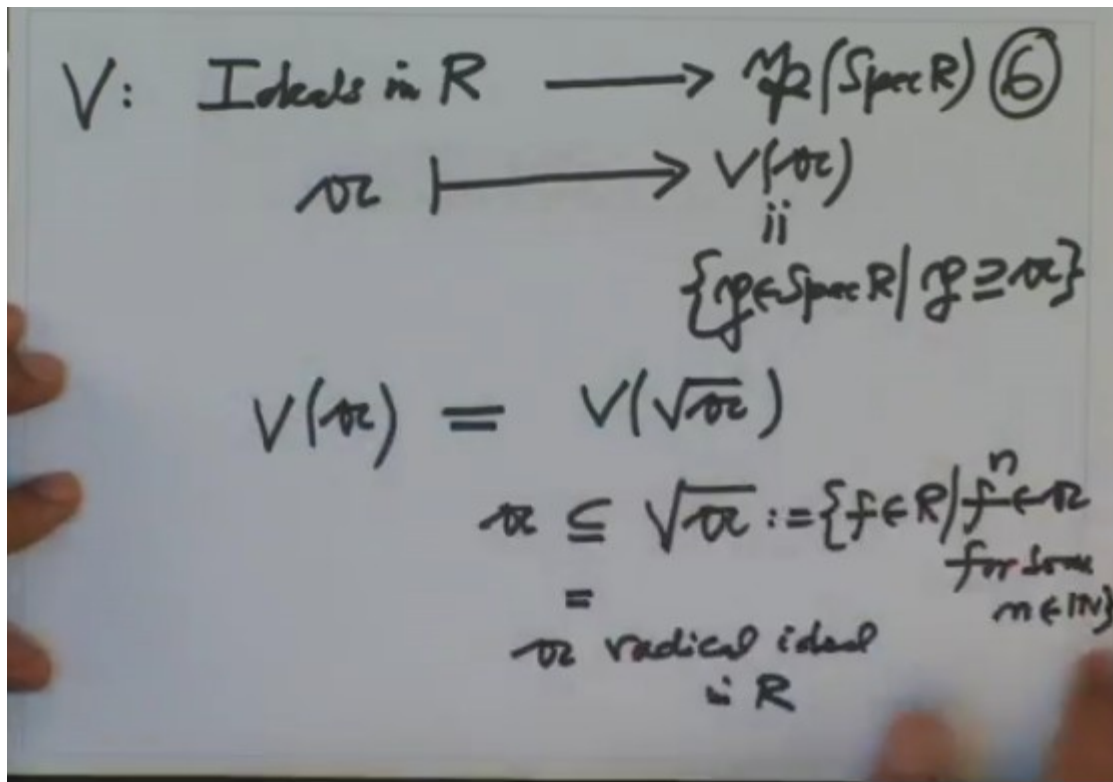 V: Ideals in R ⟶ 𝔓(Spec R) ⑥
𝔞 ⟼ V(𝔞)
ii
{𝔭 ∈ Spec R | 𝔭 ⊇ 𝔞}
V(𝔞) = V(√𝔞)
𝔞 ⊆ √𝔞 := {f ∈ R | fⁿ ∈ 𝔞
for some
n ∈ ℕ}
=
𝔞 radical ideal
in R